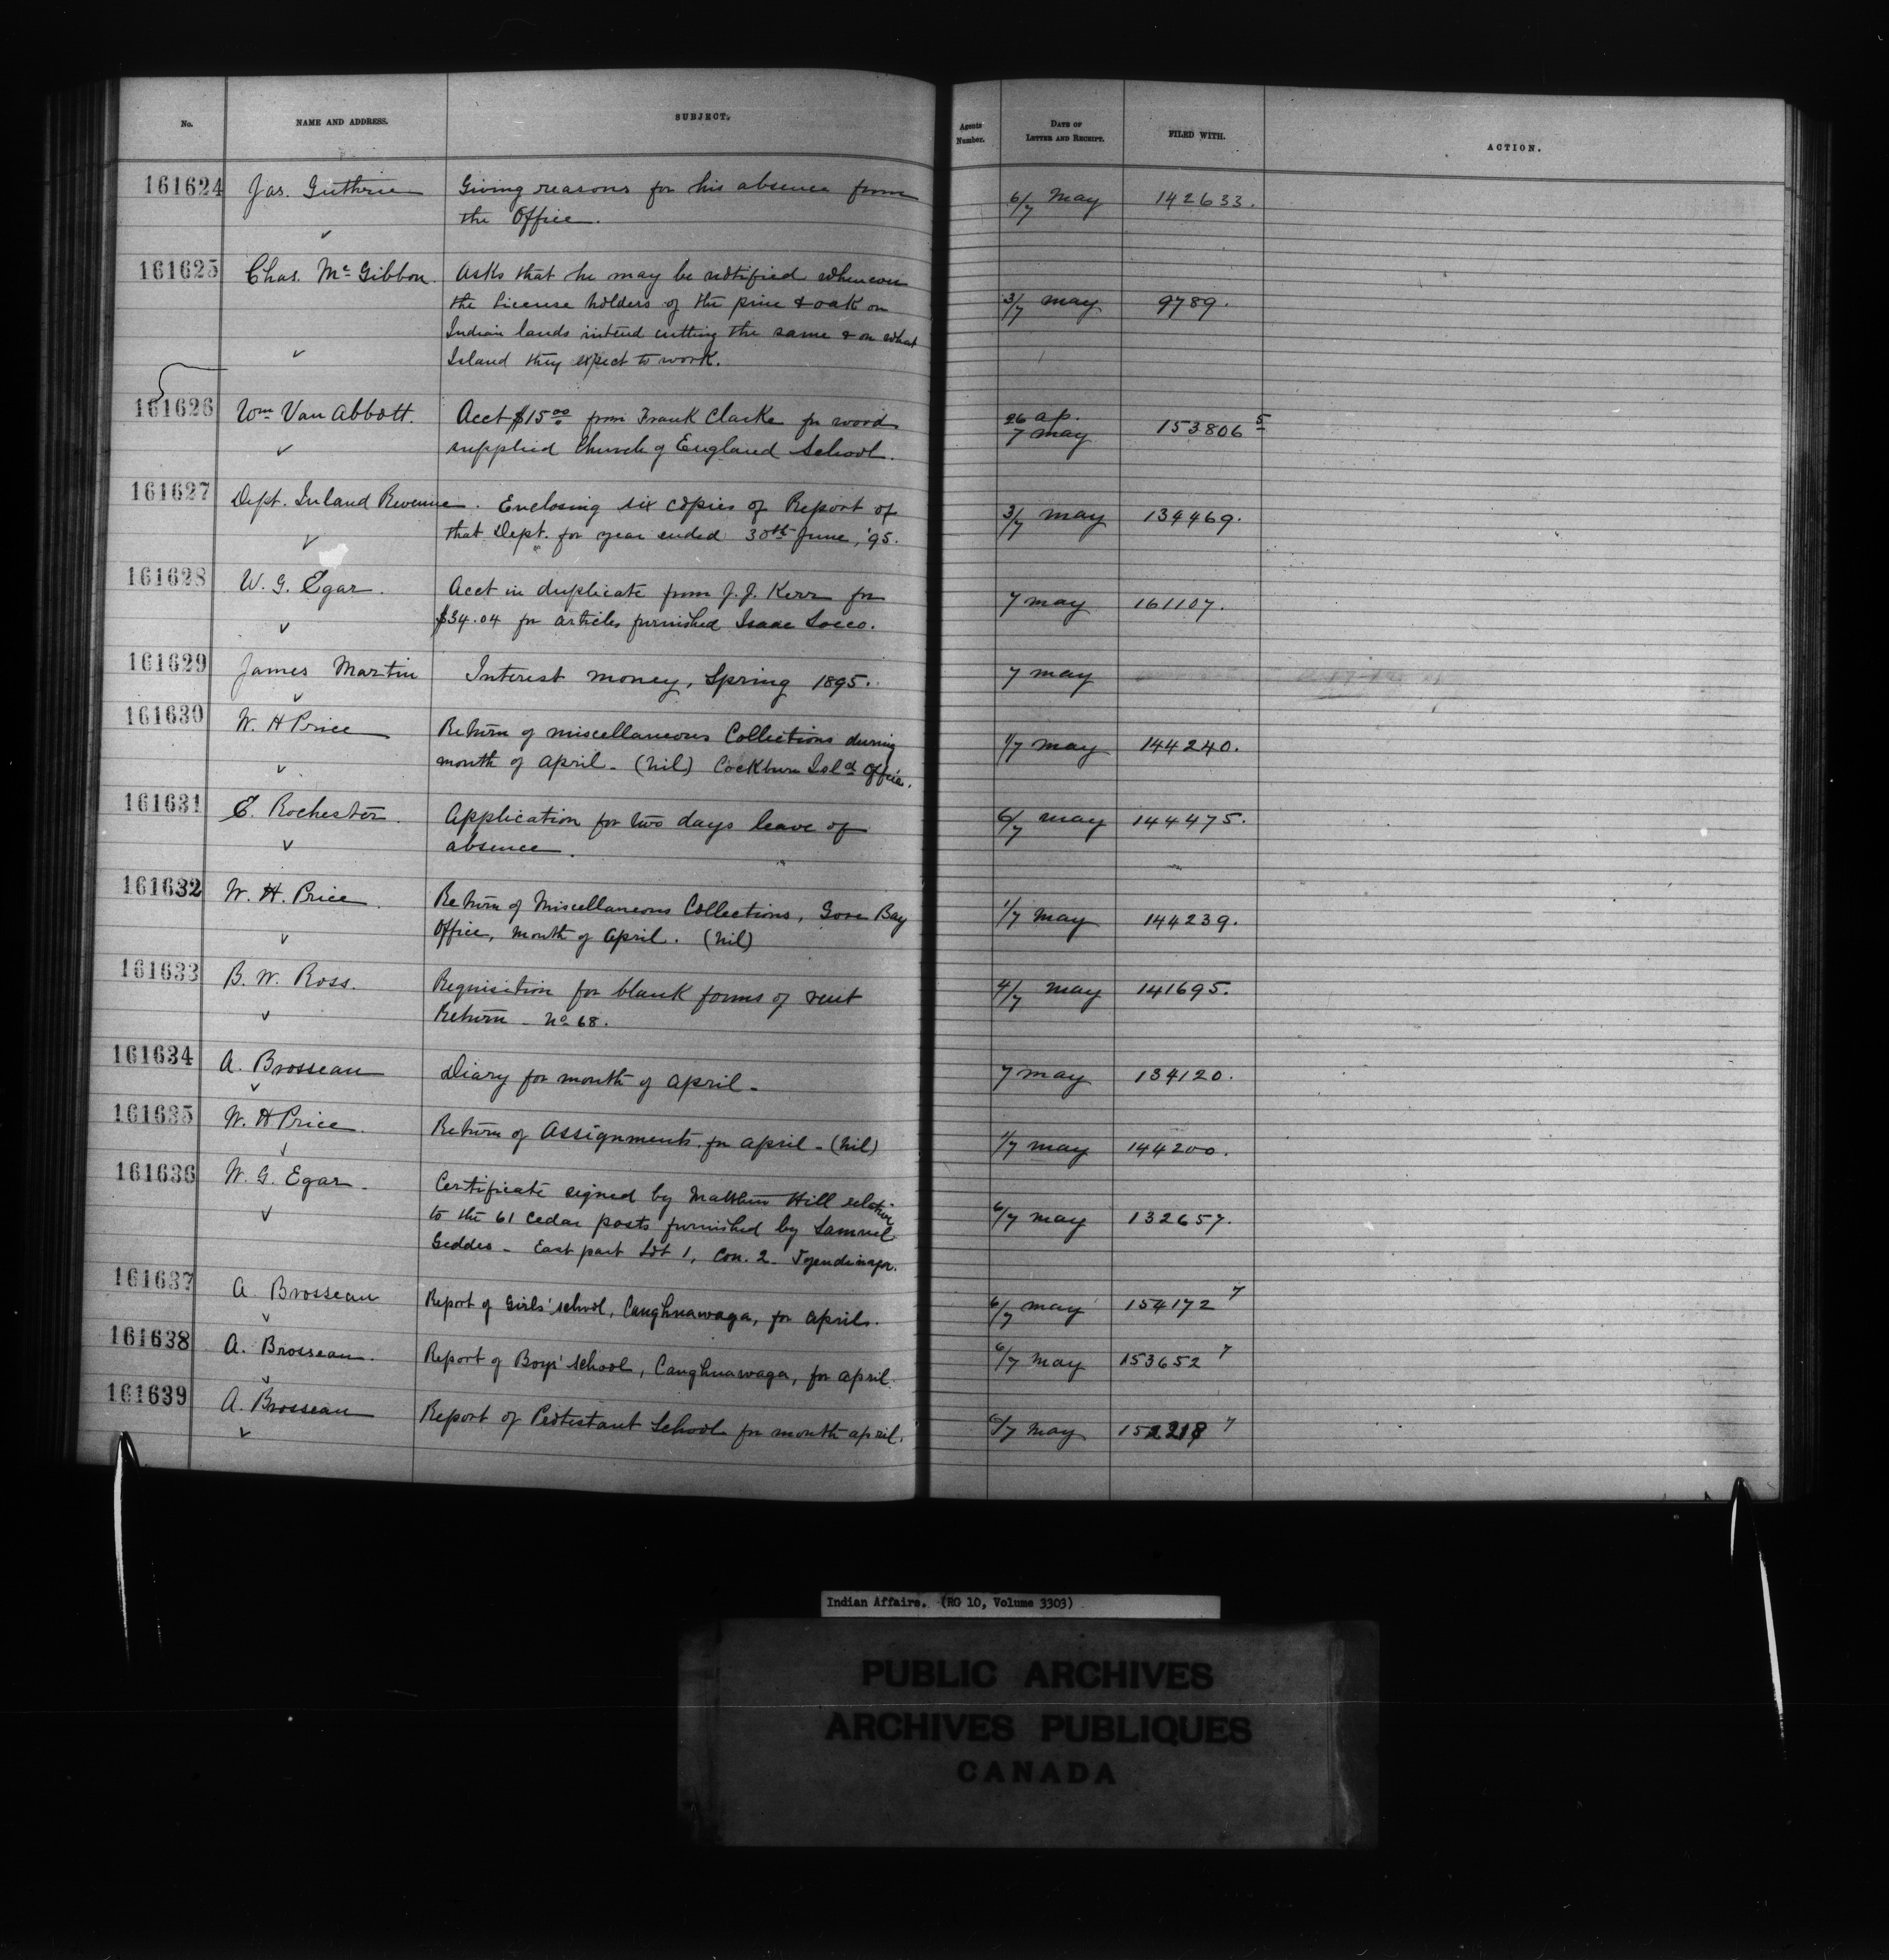 No. NAME AND ADDRESS. SUBJECT. Agents Number. DATE OF LETTER AND RECEIPT. FILED WITH. ACTION.
161624 Jas. Guthrie Giving reasons for his absence from 6/7 May 142633.
the Office.
161625 Chas. McGibbon. Asks that he may be notified whenever
the License holders of the pine & oak on 3/7 May 9789.
Indian lands intend cutting the same & on what
Island they expect to work.
161626 Wm Van Abbott. Acct $15.00 from Frank Clarke for wood 26 ap. 7 May 153806 5
supplied Church of England School.
161627 Dept. Inland Revenue. Enclosing six copies of Report of 3/7 May 134469.
that Dept. for year ended 30th June, '95.
161628 W. G. Egar. Acct in duplicate from J. J. Kerr for 7 May 161107.
$34.04 for articles furnished Isaac
161629 James Martin Interest money, Spring 1895. 7 May
161630 W. H Price Return of miscellaneous Collections during 1/7 May 144240.
month of April - (nil) Cockburn Isld Office.
161631 C. Rochester. Application for two days leave of 6/7 May 144475.
absence.
161632 W. H. Price. Return of Miscellaneous Collections, Gore Bay 1/7 May 144239.
Office, month of April. (nil)
161633 B. W. Ross. Requisition for blank forms of rent 4/7 May 141695.
Return - No 68.
161634 A. Brosseau Diary for month of April - 7 May 134120.
161635 W. H Price. Return of Assignments for April - (nil) 1/7 May 144200.
161636 W. G. Egar. Certificate signed by Matthew Hill relative
to the 61 cedar posts furnished by Samuel 6/7 May 132657.
Geddes - East part Lot 1, Con. 2. Tyendinaga.
161637 A. Brosseau Report of Girls' school, Caughnawaga, for April. 6/7 May 154172 7
161638 A. Brosseau. Report of Boys' school, Caughnawaga, for April. 6/7 May 153652 7
161639 A. Brosseau Report of Protestant School for month April. 6/7 May 7
Indian Affairs. (RG 10, Volume 3303)
PUBLIC ARCHIVES
ARCHIVES PUBLIQUES
CANADA